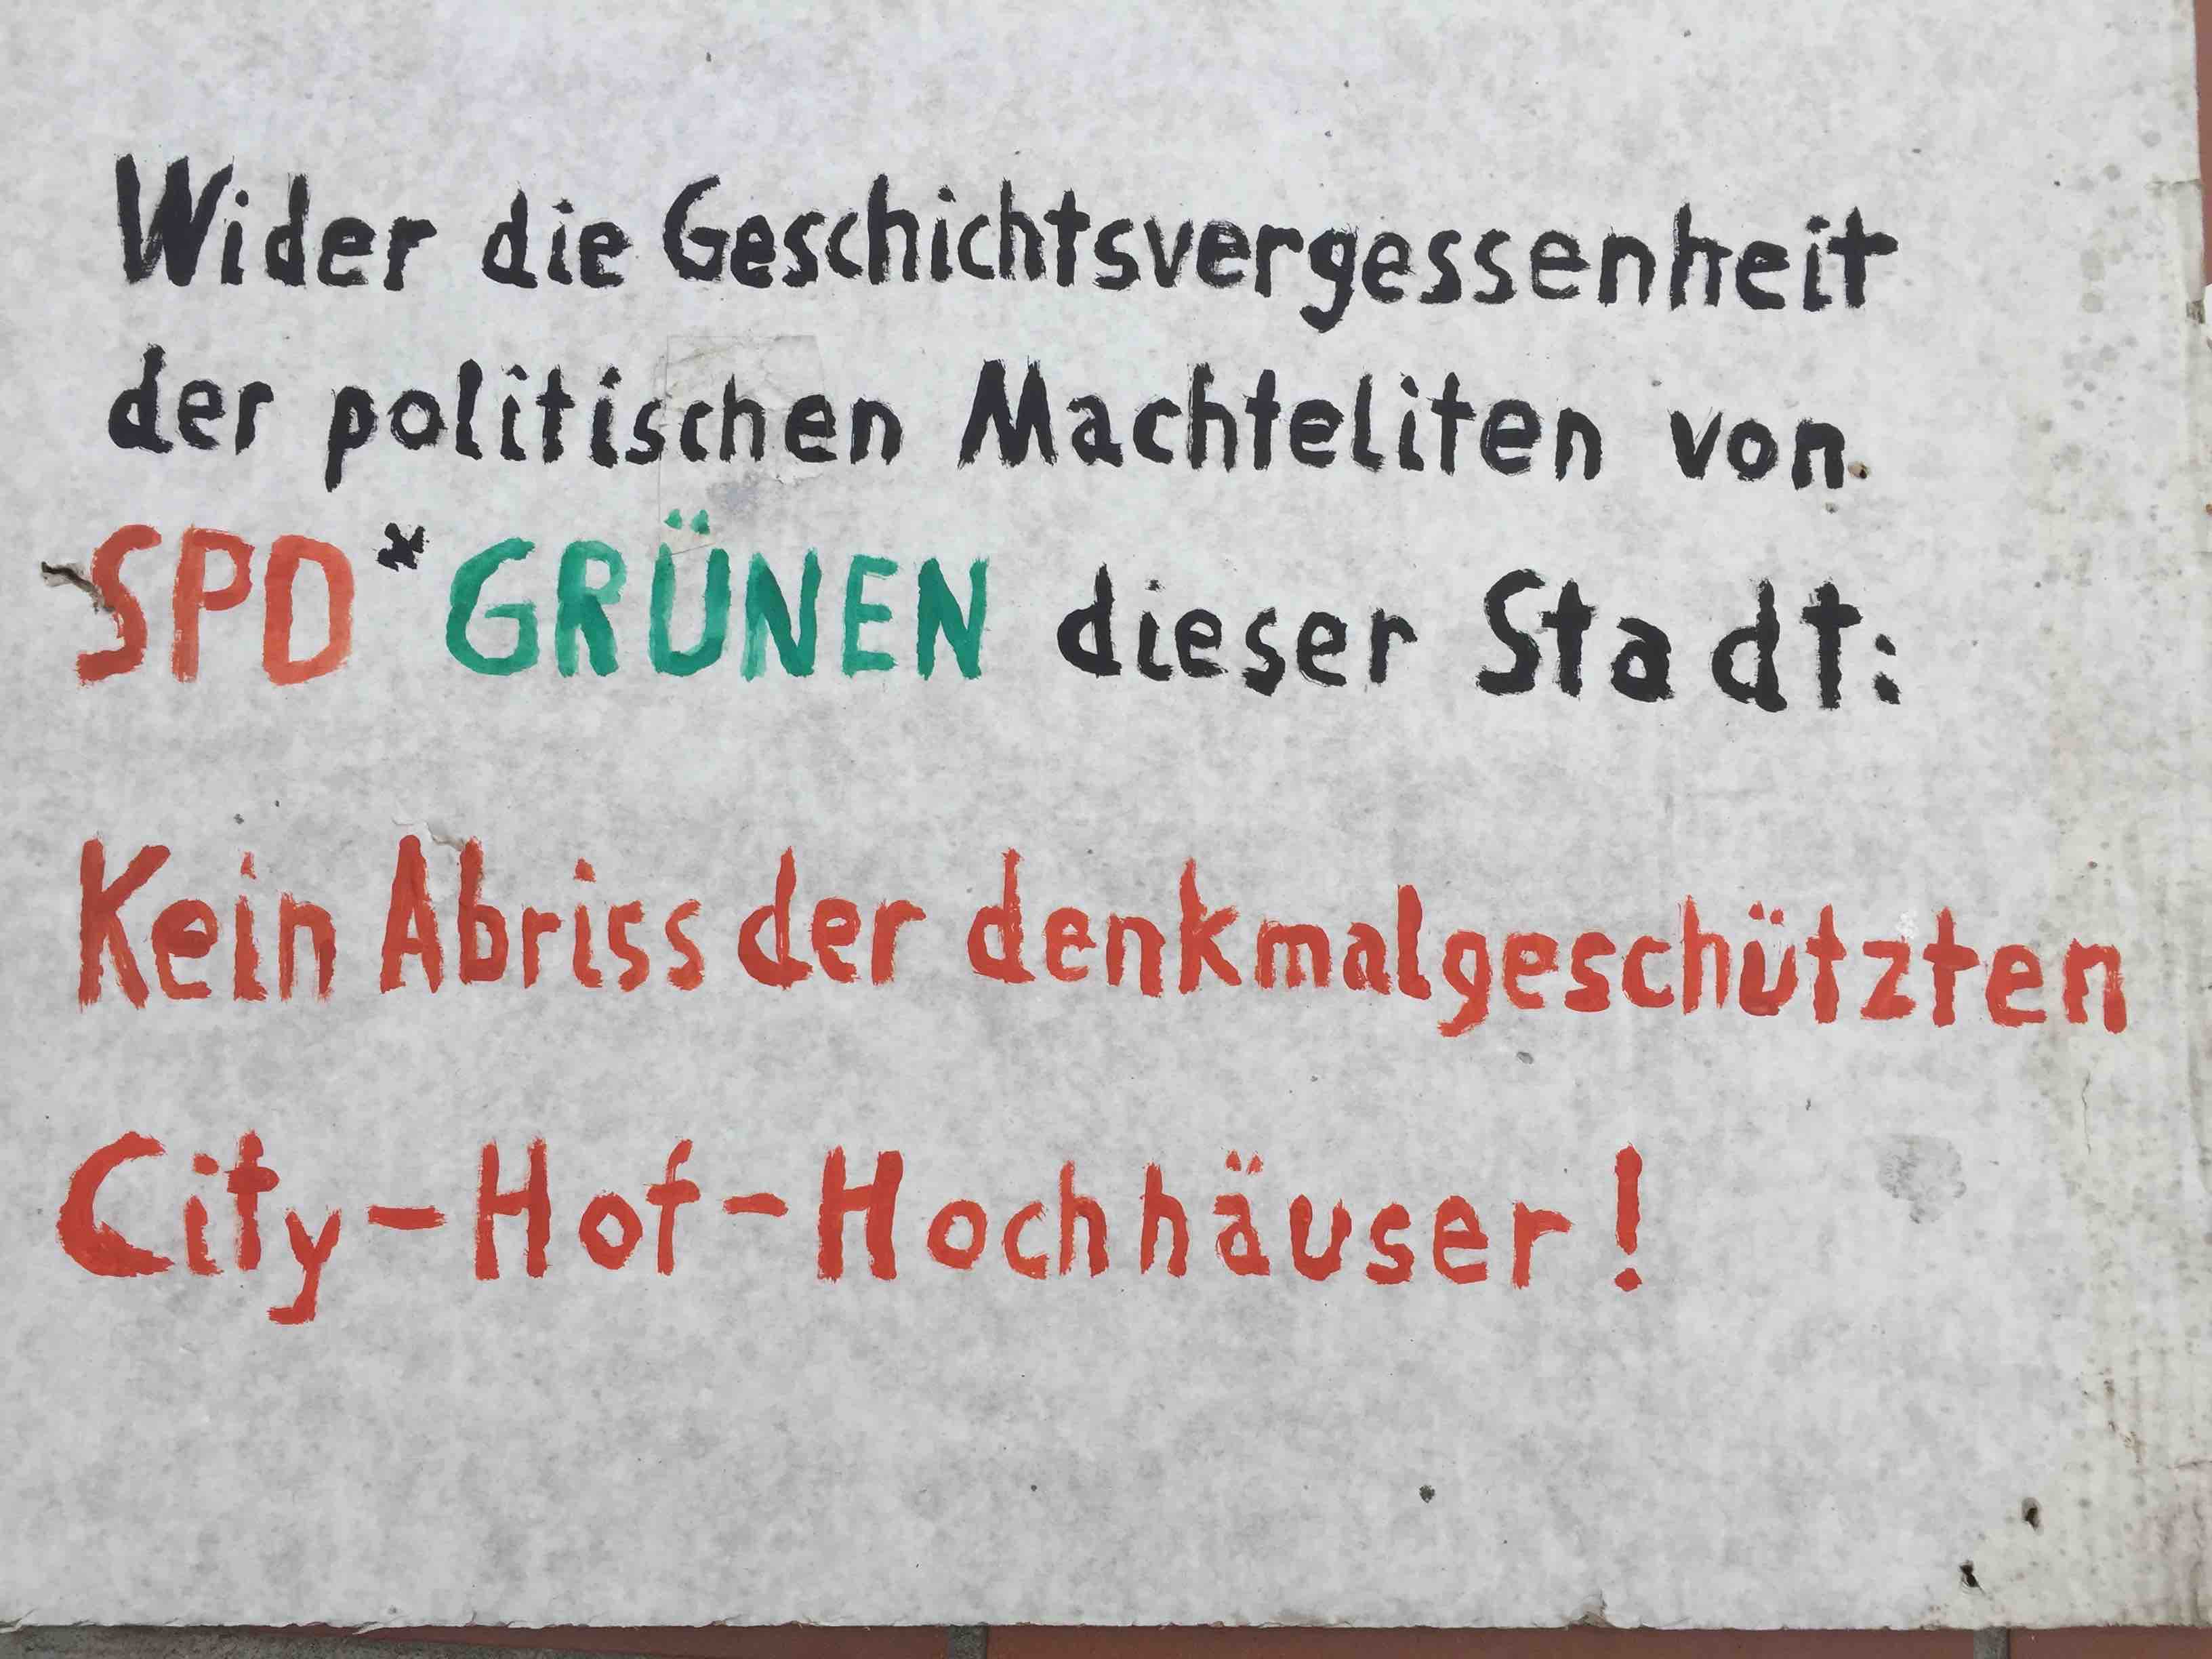 Wider die Geschichtsvergessenheit
der politischen Machteliten von
SPD*GRÜNEN dieser Stadt:
Kein Abriss der denkmalgeschützten
City-Hof-Hochhäuser!